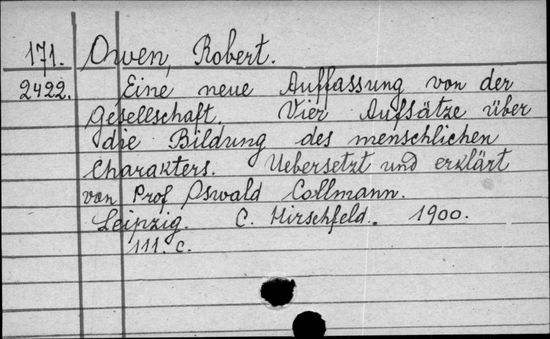 171. Owen, Robert.
2422. Eine neue Auffassung von der
Gesellschaft. Vier Aufsätze über
die Bildung des menschlichen
Charakters. Uebersetzt und erklärt
von Prof. Oswald Collmann.
Leipzig. C. Hirschfeld. 1900.
111. c.